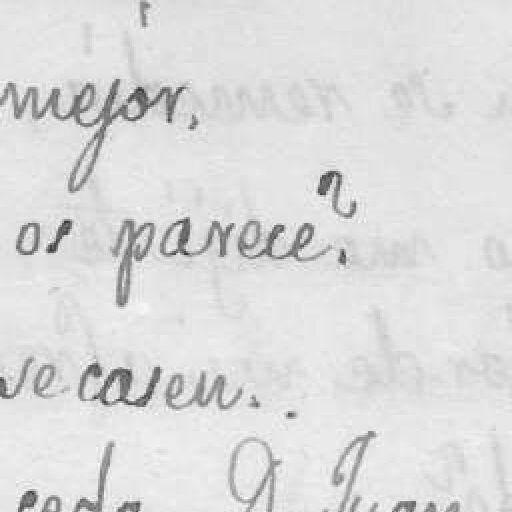 mejor.
os parece?
se casen..
ceda D. Juan